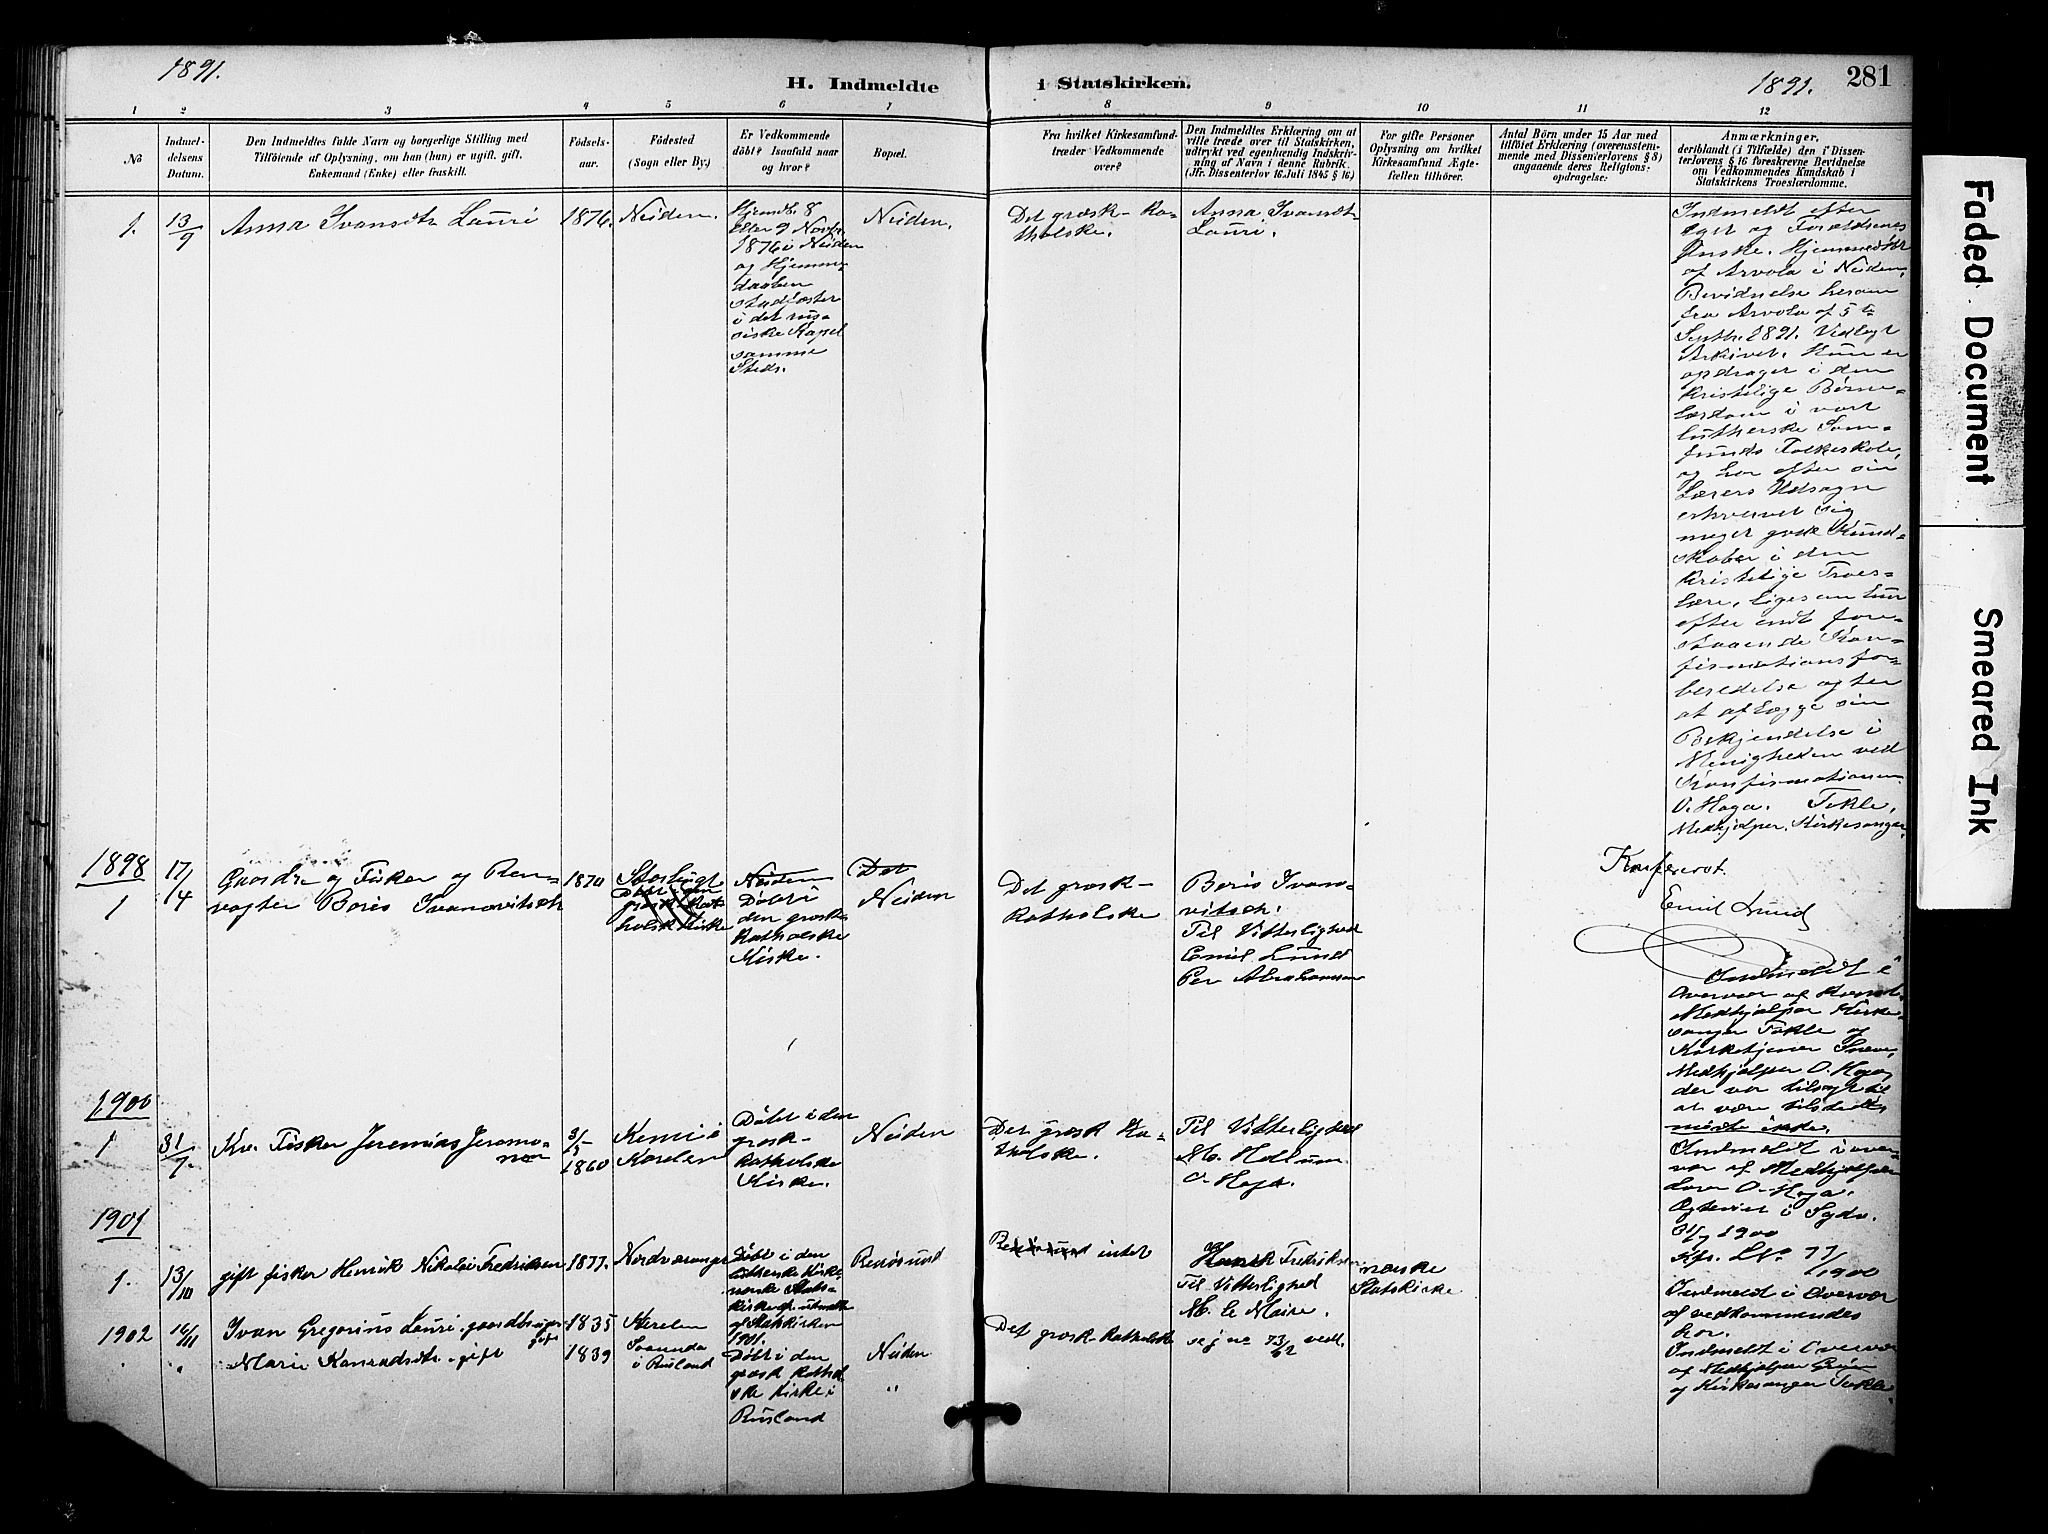 1891.
H. Indmeldte i Statskirken.
1891.
281
1 2 3 4 5 6 7 8 9 10 11 12
No
Indmel-
delsens
Datum.
Den Indmeldtes fulde Navn og borgerlige Stilling med
Tilföiende af Oplysning, om han (hun) er ugift, gift,
Enkemand (Enke) eller fraskilt.
Födsels-
aar.
Födested
(Sogn eller By.)
Er Vedkommende
döbt? Isaafald naar
og hvor?
Bopæl.
Fra hvilket Kirkesamfund
træder Vedkommende
over?
Den Indmeldtes Erklæring om at
ville træde over til Statskirken,
udtrykt ved egenhændig Indskriv-
ning af Navn i denne Rubrik.
(Jfr. Dissenterlov 16 Juli 1845 § 16.)
For gifte Personer
Oplysning om hvilket
Kirkesamfund Ægte-
fællen tilhörer.
Antal Börn under 15 Aar med
tilföiet Erklæring (overensstem-
mende med Dissenterlovens § 8)
angaaende deres Religions-
opdragelse.
Anmærkninger,
deriblandt (i Tilfælde) den i Dissen-
terlovens § 16 foreskrevne Bevidnelse
om Vedkommendes Kundskab i
Statskirkens Troeslærdomme.
1.
13/9
Anna Ivansdtr Lauri
1876.
Neiden.
Hjemdt. 8
eller 9 Novbr.
1876 i Neiden
og Hjemme-
daaben
stadfæstet
i det rus-
siske Kapel
samme
Steds.
Neiden.
Det græsk-ka-
tholske.
Anna Ivansdt-
Lauri.
Indmeldt efter
eget og Forældrenes
Ønske. Hjemmedøbt
af Arvola i Neiden,
Bevidnelse herom
fra Arvola af 5te
Septb. 1891. Vedlagt
Arkivet. Hun er
opdraget i den
kristelige Børne-
lærdom i vort
lutherske Sam-
funds Folkeskole,
og har efter sin
Lærers Udsagn
erhvervet sig
meget gode Kund-
skaber i den
kristelige Troes-
lære, ligesom hun
efter endt fore-
staaende Kon-
firmationsfor-
beredelse agter
at aflægge sin
Bekjendelse i
Menigheden ved
Konfirmationen.
O. Haga. Tokle,
Medhjælper. Kirkesanger.
1898
1
17/4
Gaardbr. og Fisker og Ren-
vogter Boris Ivanovitsch
1870
græsk kat-
holsk Kirke
Neiden
Döbt i
den græsk-
katholske
Kirke.
Det
Neiden
Det græsk-
katholske
Boris Ivano-
vitsch.
Til Vitterlighed
Emil Lund
Per Abrahamsen
Konfereret.
Emil Lund
Indmeldt i
Overvær af
Medhjælper Kirke-
sanger Tokle og
Kirketjener
Medhjælper O. Haga
der var tilsagt til
at være tilstede,
mødte ikke.
1900
1
31/7.
Fisker Jeremias Jeremia-
3/5
1860
Kemi i
Karelen
Döbt i den
græsk-
katholske
Kirke.
Neiden
Det græsk Ka-
tholske.
Til Vitterlighed
M. Hollum.
O. Haga.
Indmeldt i over-
vær af Medhjælper
O. Haga.
Ægteviet i Sydv.
1900
No 77/1900
1901
1.
13/10
gift fisker Henrik Nikolai Fredriksen
1877.
Nordvaranger
Döbt i den
lutherske Kirke
norske Stats-
kirke
af Statskirken
1901.
intet
Henrik Fredriksen
Til Vitterlighed
norske
Statskirke
Indmeldt i Overvær
af vedkommendes
1902
16/11
Ivan Gregorius Lauri. gaardbruger
gift
1835
Karelen
Det græsk-katholske
se j no 73/02 vedl.
" "
Marie Konradsdtr. gift
1839
i Rusland
Döbt i den
græsk kathol
ske Kirke i
Rusland
Neiden
"
Indmeldt i Overvær
af Medhjælper
og Kirkesanger Tokle
Faded Document
Smeared Ink